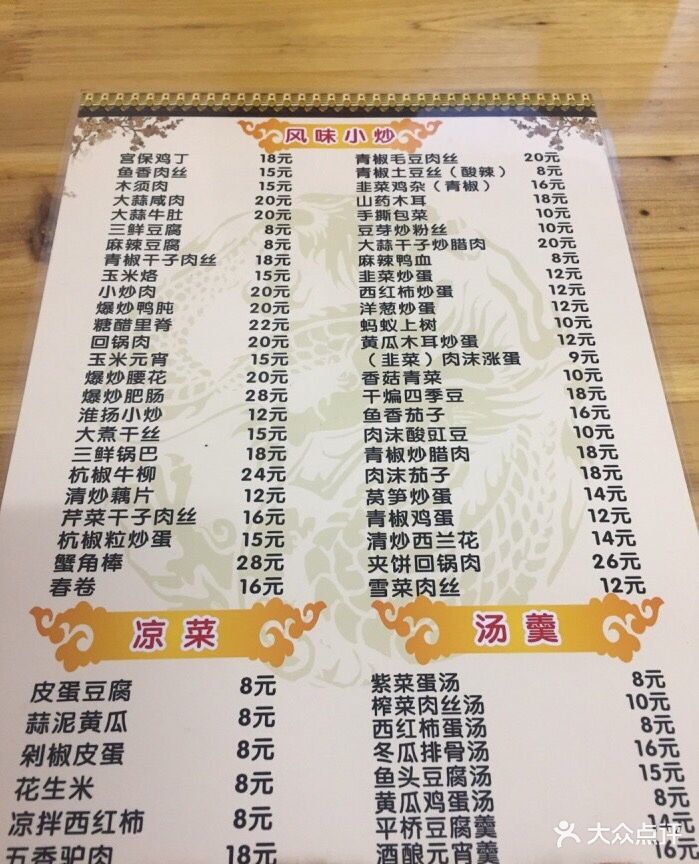 风味小炒
宫保鸡丁 18元
鱼香肉丝 15元
木须肉 15元
大蒜咸肉 20元
大蒜牛肚 20元
三鲜豆腐 8元
麻辣豆腐 8元
青椒干子肉丝 18元
玉米烙 15元
小炒肉 20元
爆炒鸭肫 20元
糖醋里脊 22元
回锅肉 20元
玉米元宵 15元
爆炒腰花 20元
爆炒肥肠 28元
淮扬小炒 12元
大煮干丝 15元
三鲜锅巴 18元
杭椒牛柳 24元
清炒藕片 12元
芹菜干子肉丝 16元
杭椒粒炒蛋 15元
蟹角棒 28元
春卷 16元
青椒毛豆肉丝 20元
青椒土豆丝（酸辣） 8元
韭菜鸡杂（青椒） 16元
山药木耳 18元
手撕包菜 10元
豆芽炒粉丝 10元
大蒜干子炒腊肉 20元
麻辣鸭血 8元
韭菜炒蛋 12元
西红柿炒蛋 12元
洋葱炒蛋 12元
蚂蚁上树 10元
黄瓜木耳炒蛋 12元
（韭菜）肉沫涨蛋 9元
香菇青菜 10元
干煸四季豆 18元
鱼香茄子 16元
肉沫酸豇豆 10元
青椒炒腊肉 18元
肉沫茄子 18元
莴笋炒蛋 14元
青椒鸡蛋 12元
清炒西兰花 14元
夹饼回锅肉 26元
雪菜肉丝 12元
凉菜
皮蛋豆腐 8元
蒜泥黄瓜 8元
剁椒皮蛋 8元
花生米 8元
凉拌西红柿 8元
五香驴肉 18元
汤羹
紫菜蛋汤 8元
榨菜肉丝汤 10元
西红柿蛋汤 8元
冬瓜排骨汤 16元
鱼头豆腐汤 15元
黄瓜鸡蛋汤 8元
平桥豆腐羹 14元
酒酿元宵羹 16元
大众点评